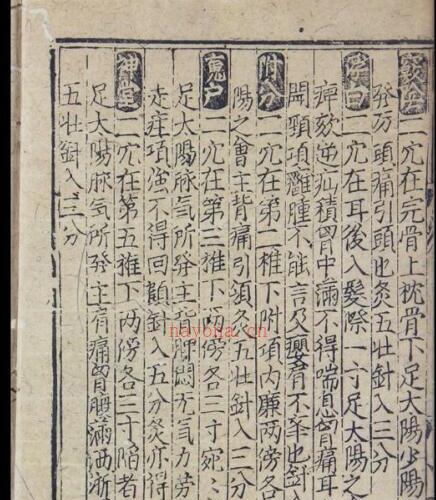 竅陰二穴在完骨上枕骨下足太陽少陽
發方頭痛引頭也灸五壯針入三分
浮白二穴在耳後入髮際一寸足太陽之
瘁欬逆疝積胷中滿不得喘息胷痛耳
開頸項癰腫不能言及癭肩不舉也針
附分二穴在第二椎下附項内廉两旁各
陽之會主背痛引須灸五壯針入三分
䰟户二穴在第三椎下两傍各三寸宛〻
足太陽脉氣所發主背胛悶无氣力勞
走疰項强不得回顧針入五分灸亦得
神堂二穴在第五椎下两傍各三寸陷者
足太陽脉氣所發主肩痛胷腹滿洒淅
五壯針入三分
nayona.cn